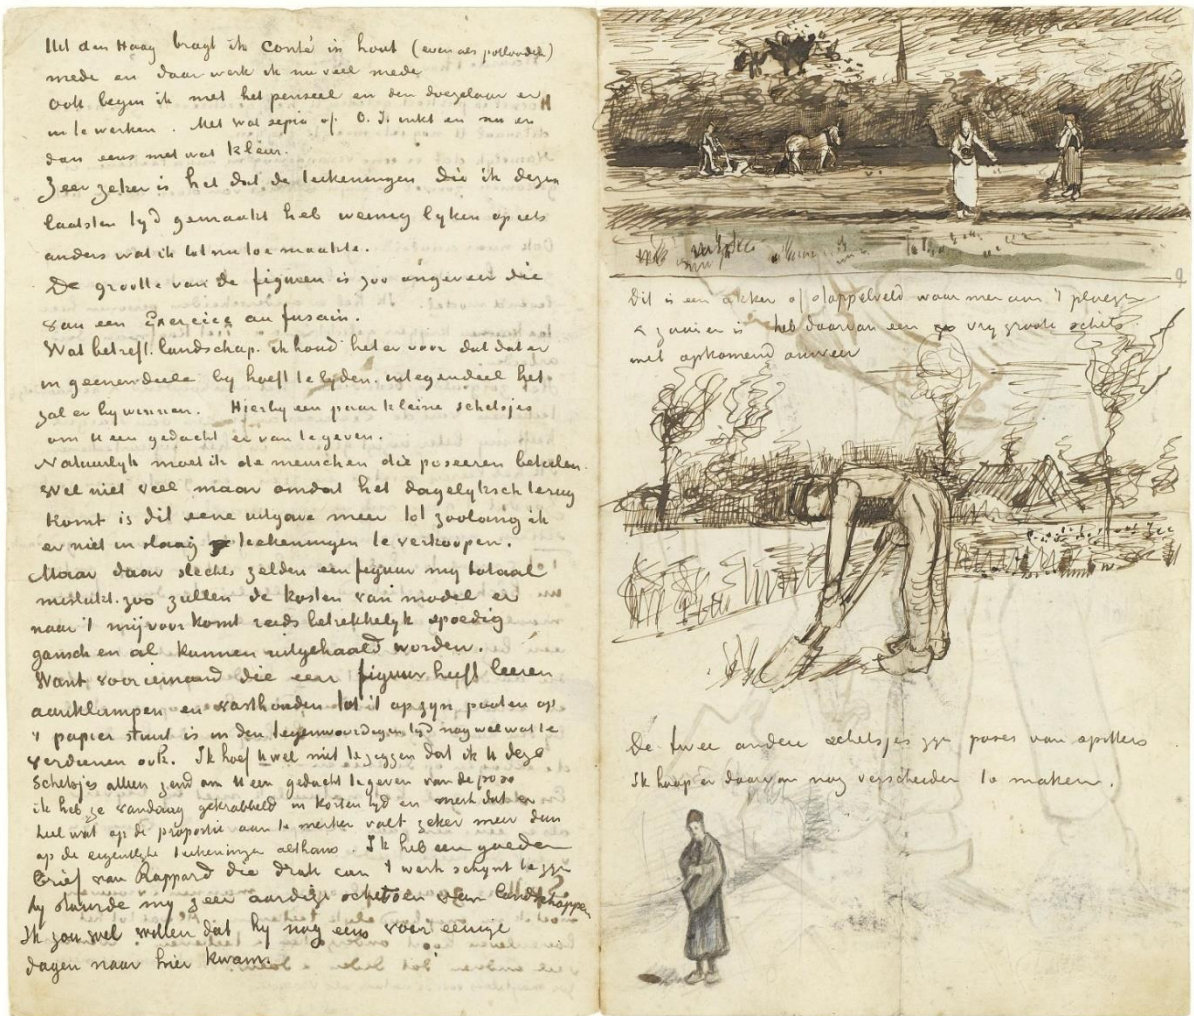 Uit den Haag bragt ik Conté in hout (even als potlooden)
mede en daar werk ik nu veel mede
ook begin ik met het penseel en den doezelaar er
in te werken. Met wat sepia of O.I. inkt en nu en
dan eens met wat kleur.
Zeer zeker is het dat de teekeningen die ik dezen
laatsten tyd gemaakt heb weinig lyken op iets
anders wat ik tot nu toe maakte.
De grootte van de figuren is zoo ongeveer die
van een Exercice au fusain.
Wat betreft landschap. ik houd het er voor dat dat er
in geenendeele by hoeft te lyden. integendeel het
zal er by winnen. Hierby een paar kleine schetsjes
om U een gedacht er van te geven.
Natuurlyk moet ik de menschen die poseeren betalen.
Wel niet veel maar omdat het dagelyksch terug
komt is dit eene uitgave meer tot zoolang ik
er niet in slaag teekeningen te verkoopen.
Maar daar slechts zelden een figuur my totaal
mislukt. zoo zullen de kosten van model er
naar 't mij voorkomt reeds betrekkelyk spoedig
gansch en al kunnen uitgehaald worden.
Want voor iemand die een figuur heeft leeren
aanklampen en vasthouden tot 't op zyn pooten op
't papier staat is in den tegenwoordigen tyd nog wel wat te
verdienen ook. Ik hoef U wel niet te zeggen dat ik U deze
schetsjes alleen zend om U een gedacht te geven van de pose
ik heb ze vandaag gekrabbeld in korten tyd en merk dat er
heel wat op de proportie aan te merken valt zeker meer dan
op de eigentlyke teekeningen althans. Ik heb een goeden
brief van Rappard die druk aan 't werk schynt te zyn
hy stuurde my zeer aardige schetsen van landschappen
Ik zou wel willen dat hy nog eens voor eenige
dagen naar hier kwam.
Dit is een akker of stoppelveld waar men aan 't ploegen
& zaaien is heb daarvan een vry groote schets
met opkomend onweer
De twee andere schetsjes zyn poses van spitters
Ik hoop er daarvan nog verscheiden te maken.